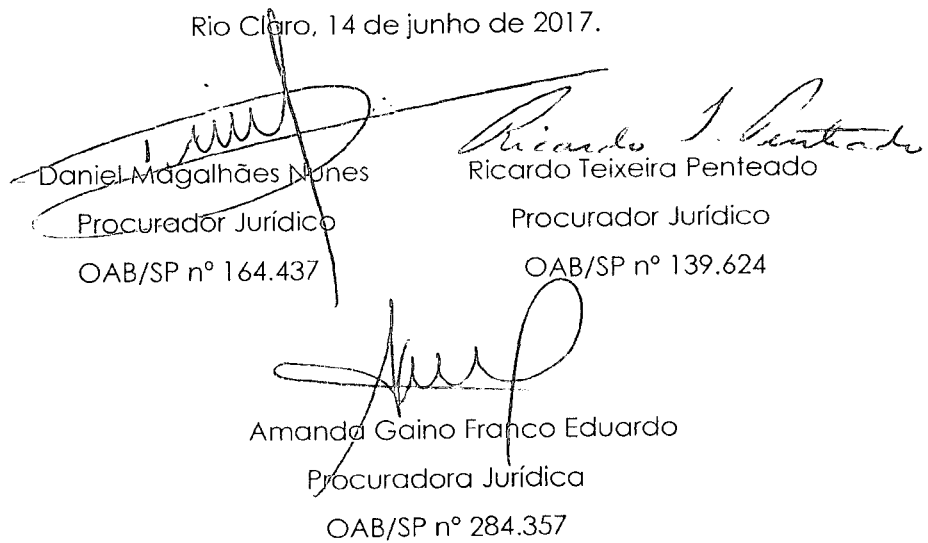 Rio Claro, 14 de junho de 2017.
Ricardo T. Penteado
Daniel Magalhães Nunes
Procurador Jurídico
OAB/SP nº 164.437
Ricardo Teixeira Penteado
Procurador Jurídico
OAB/SP nº 139.624
Amanda Gaino Franco Eduardo
Procuradora Jurídica
OAB/SP nº 284.357